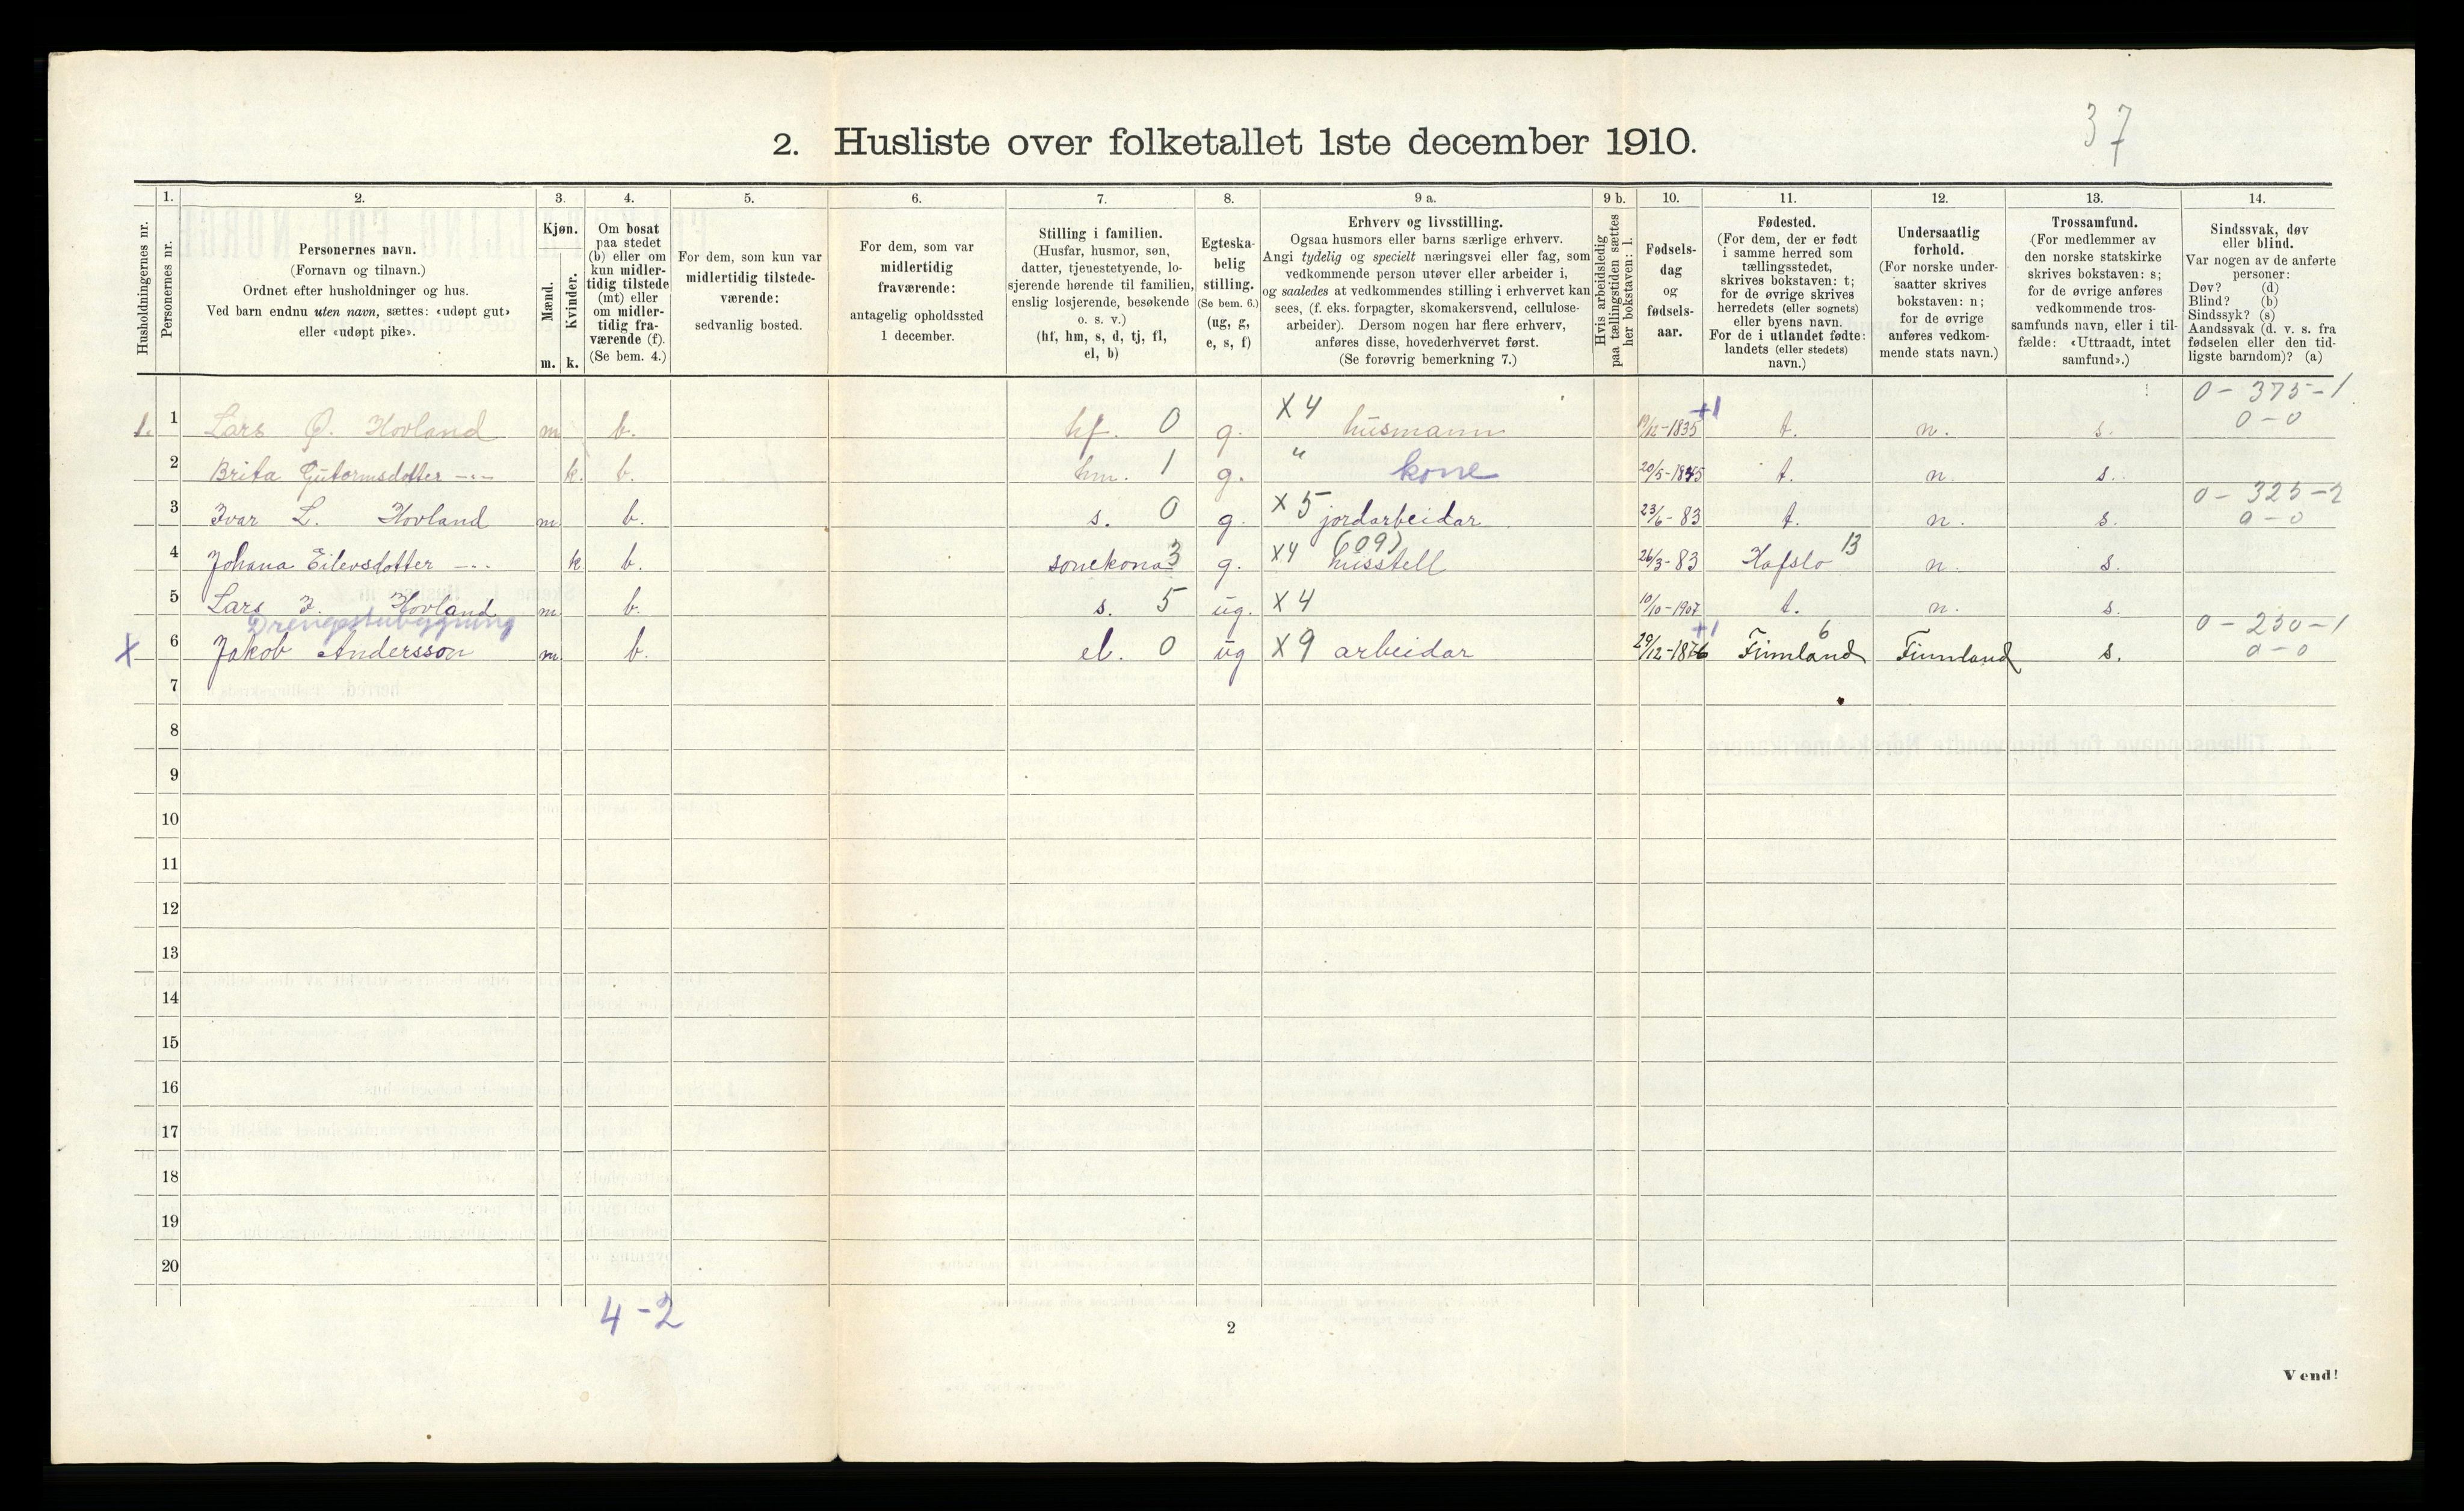 37
2. Husliste over folketallet 1ste december 1910.
Husholdningernes nr.
1.
Personernes nr.
2.
Personernes navn.
(Fornavn og tilnavn.)
Ordnet efter husholdninger og hus.
Ved barn endnu uten navn, sættes: «udøpt gut»
eller «udøpt pike».
3.
Kjøn.
Mænd.
Kvinder.
m. k.
4.
Om bosat
paa stedet
(b) eller om
kun midler-
tidig tilstede
(mt) eller
om midler-
tidig fra-
værende (f).
(Se bem. 4.)
5.
For dem, som kun var
midlertidig tilstede-
værende:
sedvanlig bosted.
6.
For dem, som var
midlertidig
fraværende:
antagelig opholdssted
1 december.
7.
Stilling i familien.
(Husfar, husmor, søn,
datter, tjenestetyende, lo-
sjerende hørende til familien,
enslig losjerende, besøkende
o. s. v.)
(hf, hm, s, d, tj, fl,
el, b)
8.
Egteska-
belig
stilling.
(Se bem. 6.)
(ug, g,
e, s, f)
9 a.
Erhverv og livsstilling.
Ogsaa husmors eller barns særlige erhverv.
Angi tydelig og specielt næringsvei eller fag, som
vedkommende person utøver eller arbeider i,
og saaledes at vedkommendes stilling i erhvervet kan
sees, (f. eks. forpagter, skomakersvend, cellulose-
arbeider). Dersom nogen har flere erhverv,
anføres disse, hovederhvervet først.
(Se forøvrig bemerkning 7.)
9 b.
Hvis arbeidsledig
paa tællingstiden sættes
her bokstaven: l.
10.
Fødsels-
dag
og
fødsels-
aar.
11.
Fødested.
(For dem, der er født
i samme herred som
tællingsstedet,
skrives bokstaven: t;
for de øvrige skrives
herredets (eller sognets)
eller byens navn.
For de i utlandet fødte:
landets (eller stedets)
navn.)
12.
Undersaatlig
forhold.
(For norske under-
saatter skrives
bokstaven: n;
for de øvrige
anføres vedkom-
mende stats navn.)
13.
Trossamfund.
(For medlemmer av
den norske statskirke
skrives bokstaven: s;
for de øvrige anføres
vedkommende tros-
samfunds navn, eller i til-
fælde: «Uttraadt, intet
samfund».)
14.
Sindssvak, døv
eller blind.
Var nogen av de anførte
personer:
Døv? (d)
Blind? (b)
Sindssyk? (s)
Aandssvak (d. v. s. fra
fødselen eller den tid-
ligste barndom)? (a)
0 - 375 - 1
1. 1 Lars Ø. Hovland m b. hf. 0 g. X 4 husmann 19/12-1835 +1 t. n. s. 0 - 0
2 Brita Gutormsdotter -"- k. b. hm. 1 g. " kone 20/5-1845 t. n. s.
0 - 325 - 2
3 Ivar L. Hovland m b. s. 0 g. X 5 jordarbeidar 23/6-83 t. n. s. 0 - 0
(09)
4 Johana Eilevsdotter -"- k b. sonekona 3 g. X4 husstell 26/3-83 Hafslo 13 n. s.
5 Lars I. Hovland m b. s. 5 ug. X 4 10/10-1907 t. n. s.
Drengestubygning
0 - 250 - 1
X 6 Jakob Andersson m. b. el. 0 ug X 9 arbeidar 29/12-1876 +1 Finnland 6 Finnland s. 0 - 0
7
8
9
10
11
12
13
14
15
16
17
18
19
20
4 - 2
2
Vend!